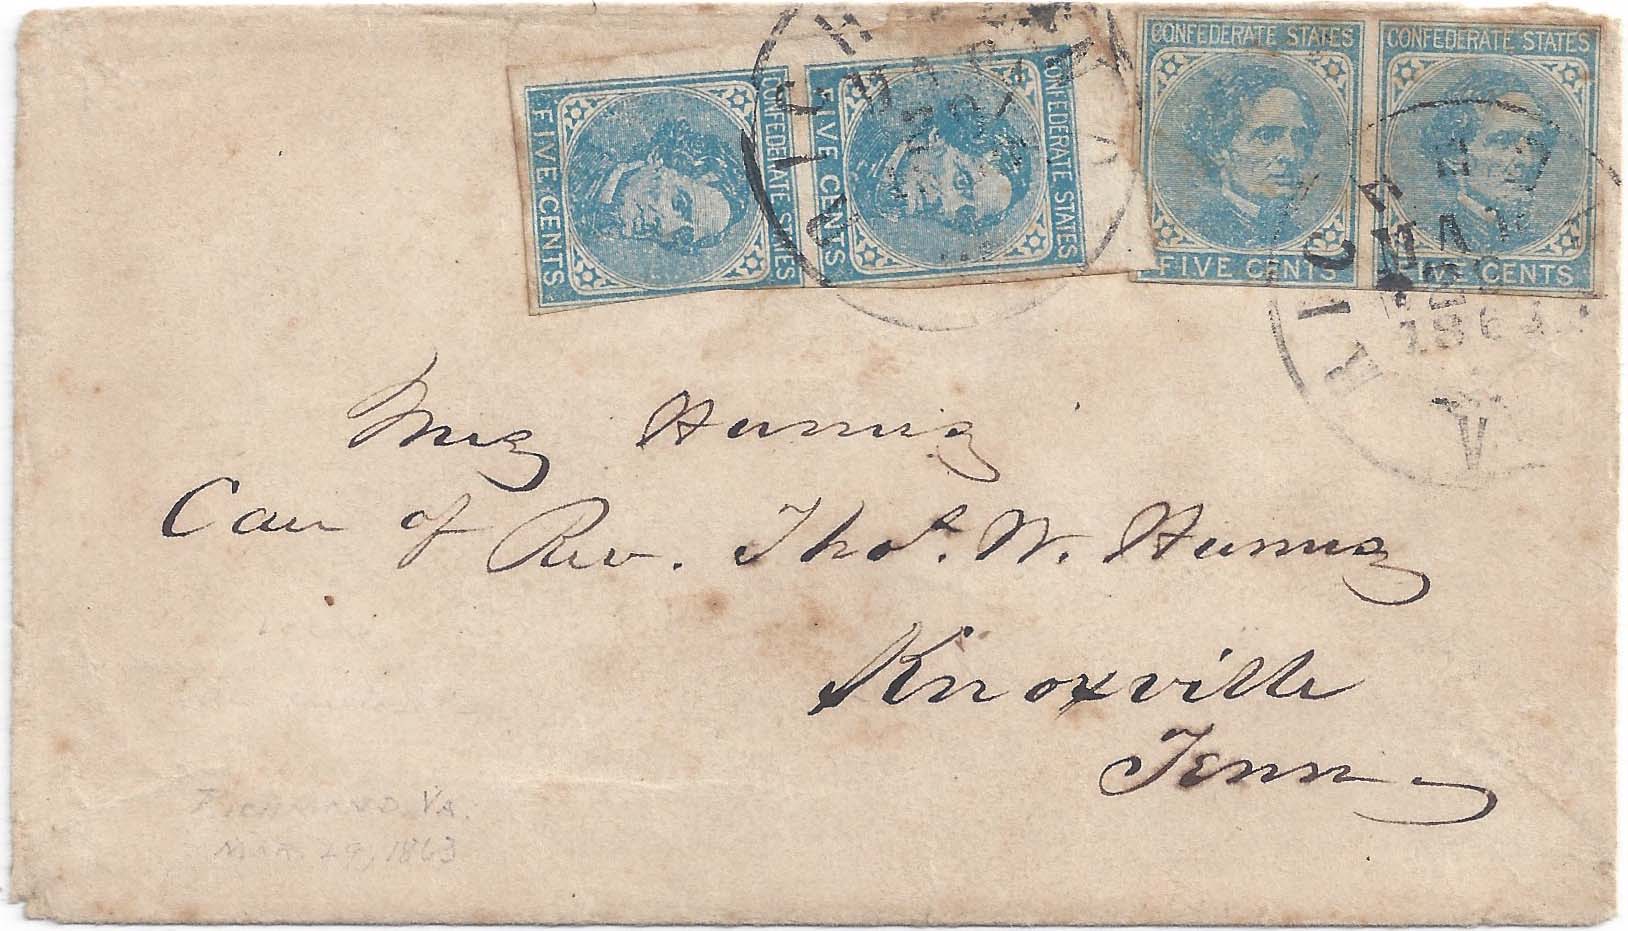 CONFEDERATE STATES
FIVE CENTS
CONFEDERATE STATES
FIVE CENTS
CONFEDERATE STATES
FIVE CENTS
CONFEDERATE STATES
FIVE CENTS
RICH
MAR
RICHM
MAR
1863
VA
Care of Rev. Thos. W. Humes
Knoxville
Tenn
RICHMOND VA.
MAR 29, 1863